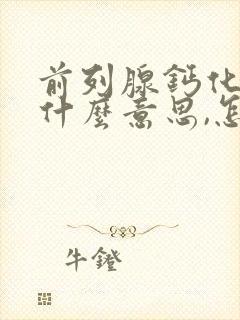 前列腺鈣化
什麼意思,怎
牛鐙